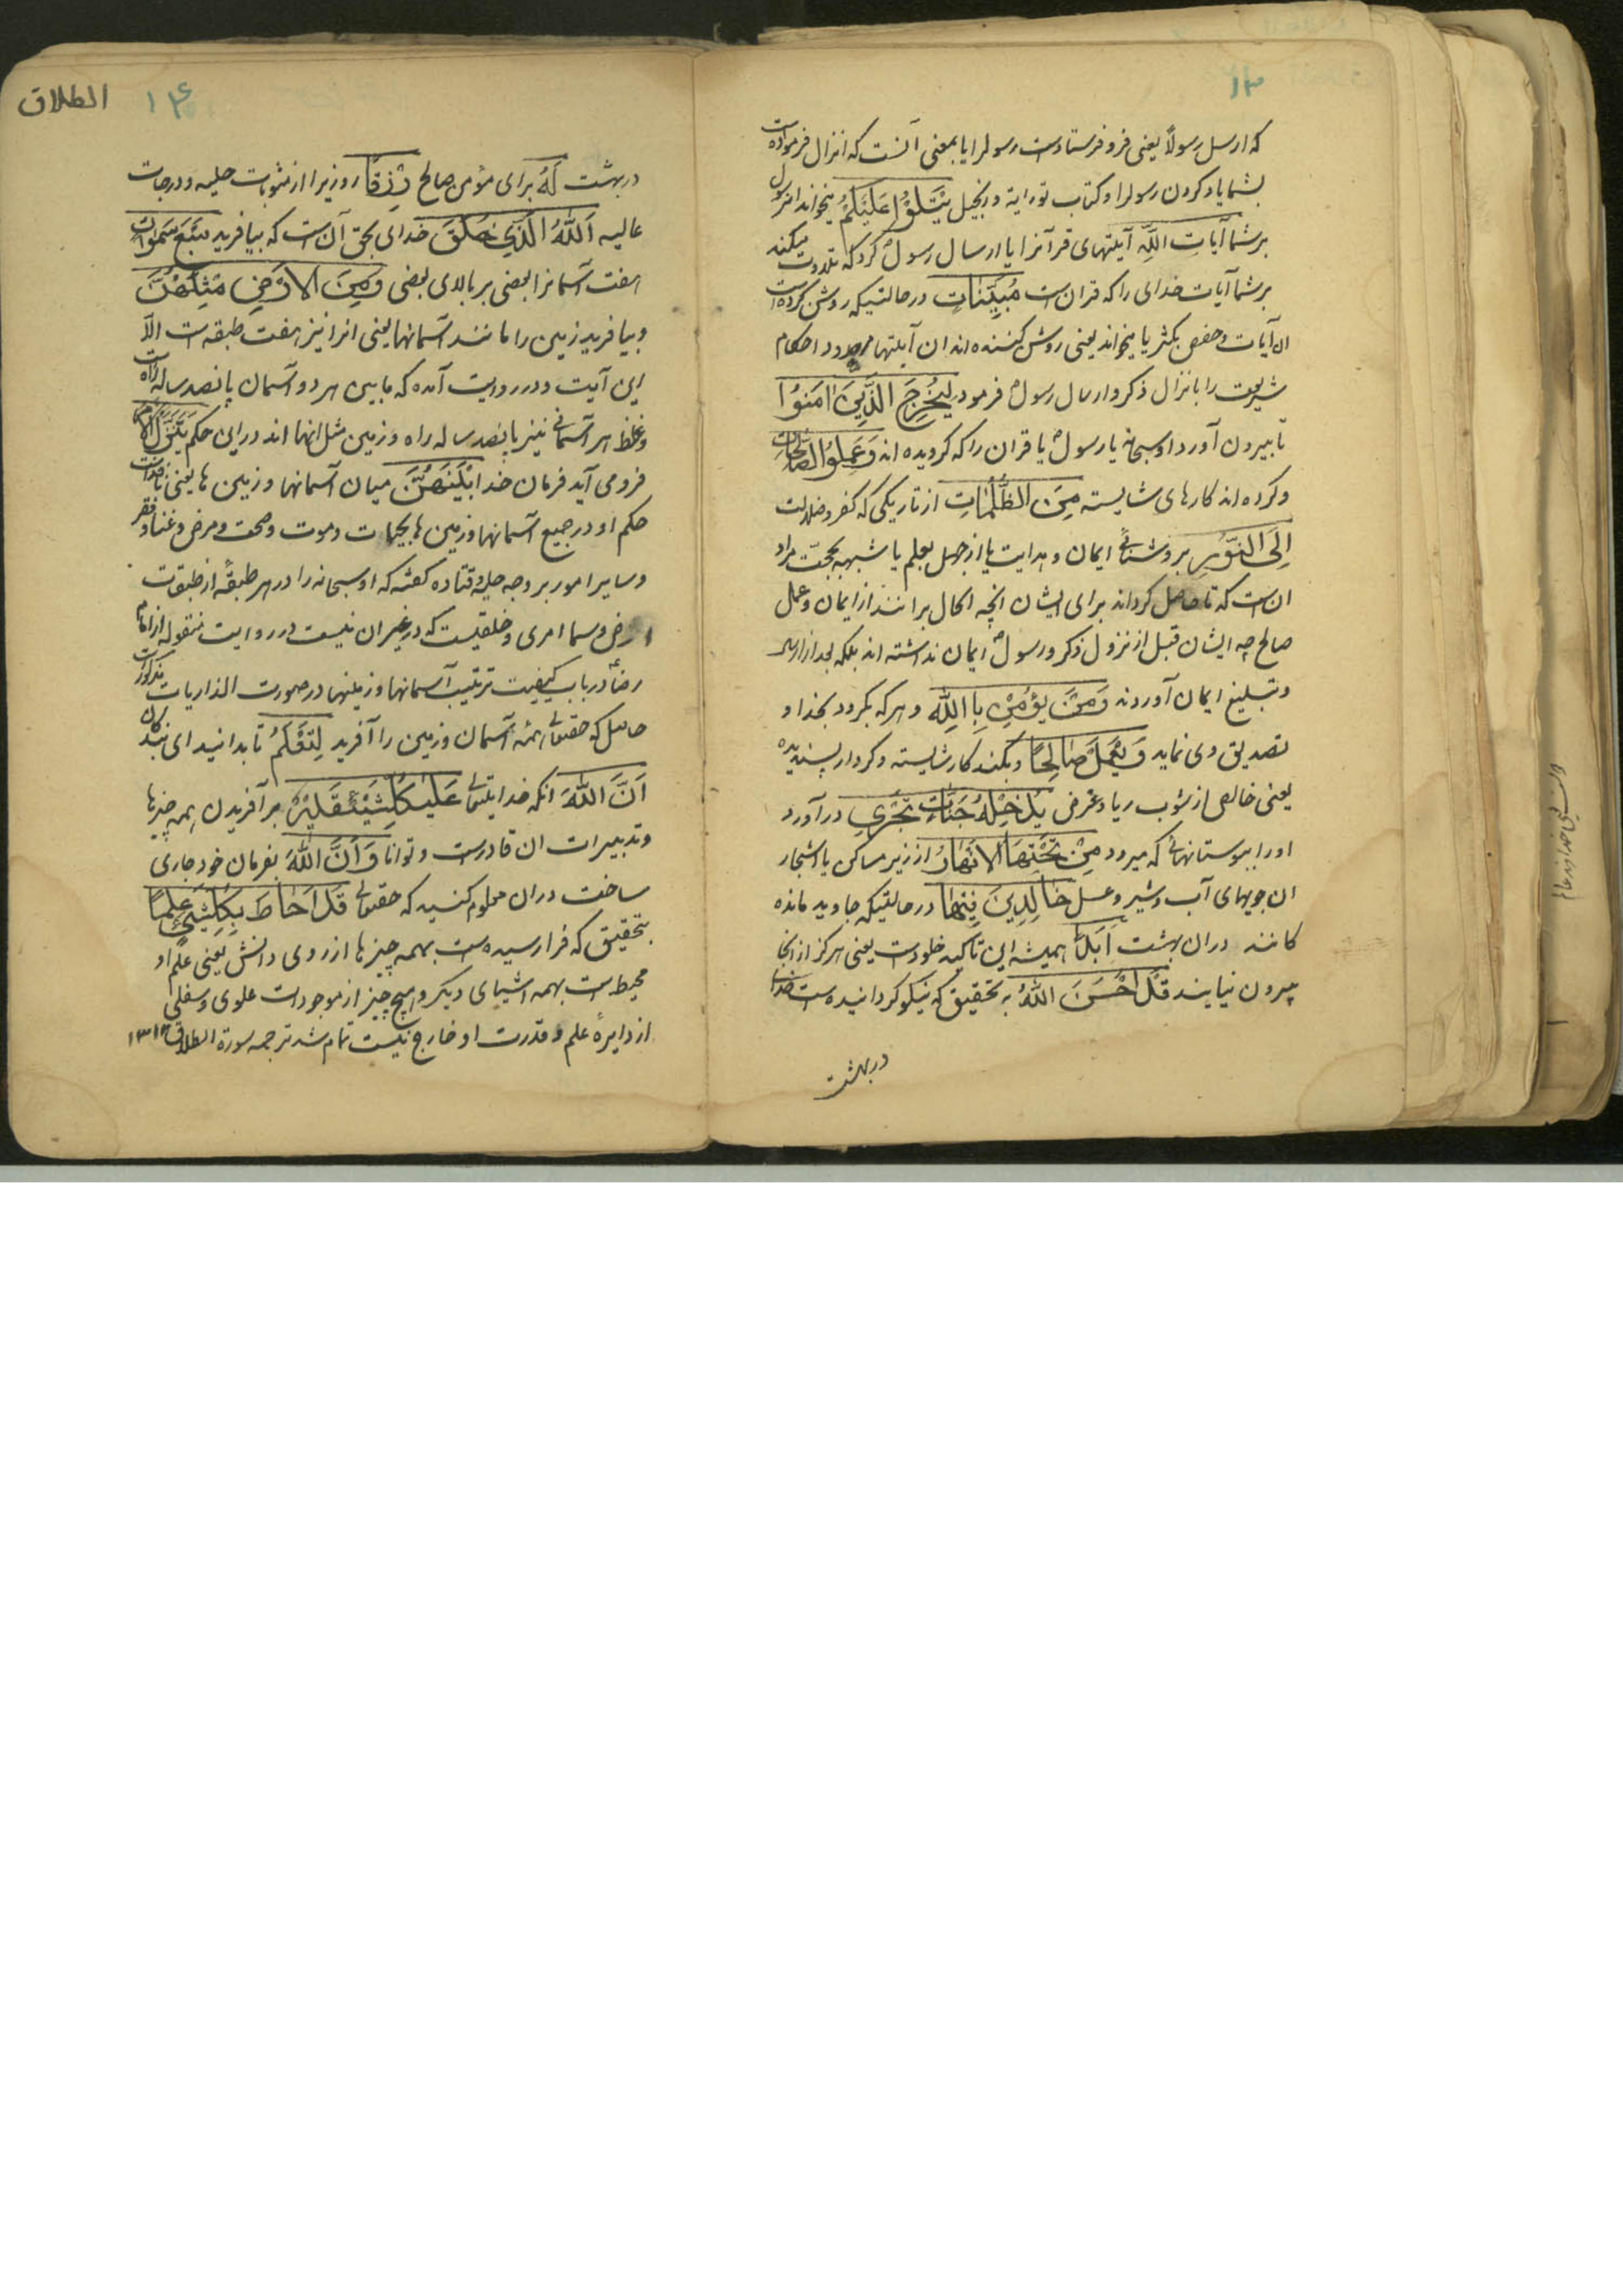 ۱۳
که ارسل رسولاً یعنی فرو فرستادست رسولرا یا بمعنی آنست که انزال فرموده است
بشما یاد کردن رسولرا و کتاب توراية و انجیل يَتْلُوُا عَلَيْكُمْ میخواند آن رسول
بر شما آيَاتِ اللّهِ آیتهای قرآنرا یا ارسال رسول کرد که تلاوت میکند
بر شما آیات خدای را که قرآن است مُبَيِّنَاتٍ در حالتیکه روشن کرده است
ان آیات و حفص بکثر یا میخواند یعنی روشن کننده اند ان آیتها حدود و احکام
شریعت را بانزال ذکر و ارسال رسول فرمود لِيُخْرِجَ الَّذِينَ اٰمَنُوا
تا بیرون آورد او سبحانه یا رسول یا قران را که گرویده اند وَعَمِلُوا الصَّالِحَاتِ
و کرده اند کارهای شایسته مِنَ الظُّلُمَاتِ از تاریکی که کفر و ضلالت
اِلَی النُّوْرِ بروشنائی ایمان و هدایت یا از جهل بعلم یا شبهه بحجت مراد
ان است که تا حاصل گرداند برای ایشان انچه الحال برانند از ایمان و عمل
صالح چه ایشان قبل از نزول ذکر و رسول ایمان نداشته اند بلکه بعد از ارسال
و تبلیغ ایمان آوردند وَمَنْ يُؤْمِنْ بِاللّهِ و هر که بگرود بخدا و
تصدیق وی نماید وَيَعْمَلْ صَالِحًا و بکند کار شایسته و کردار پسندیده
یعنی خالص از شوب ریا و غرض يُدْخِلْهُ جَنَّاتٍ تَجْرِي در آورد
اورا ببوستانهائی که میرود مِنْ تَحْتِهَا الاَنْهَارُ از زیر مساکن یا اشجار
ان جویهای آب و شیر و عسل خَالِدِينَ فِيْهَا در حالتیکه جاوید مانده
کانند دران بهشت اَبَدًا همیشه این تاکید خلودست یعنی هرگز از انجا
بیرون نیایند قَدْ اَحْسَنَ اللّهُ به تحقیق که نیکو گردانیده است خدای
در بهشت
الطلاق
۱۴
در بهشت لَهُ برای مؤمن صالح رِزْقًا روزیرا از مثوبات جلیه و درجات
عالیه اَللّهُ الَّذِي خَلَقَ خدای بحق آن است که بیافرید سَبْعَ سَمٰوَاتٍ
هفت آسمانرا بعضی بر بالای بعضی وَمِنَ الاَرْضِ مِثْلَهُنَّ
و بیافرید زمین را مانند آسمانها یعنی انرا نیز هفت طبقه است الاّ
این آیت و در روایت آمده که مابین هر دو آسمان پانصد ساله راه است
و غلظ هر آسمانی نیز پانصد ساله راه و زمین مثل انها اند در این حکم يَتَنَزَّلُ الاَمْرُ
فرو می آید فرمان خدا بَيْنَهُنَّ میان آسمانها و زمین ها یعنی نافذ است
حکم او در جمیع آسمانها و زمین ها بحیات و موت و صحت و مرض و غنا و فقر
و سایر امور بر وجه حکمة قتاده گفته که او سبحانه را در هر طبقهٔ از طبقات
ارض و سما امری و خلقیست که در غیر ان نیست در روایت منقوله از امام
رضا در باب کیفیت ترتیب آسمانها و زمینها در صورت الذاریات مذکورست
حاصل که حقتعالی همه آسمان و زمین را آفرید لِتَعْلَمُوا تا بدانید ای بندگان
اَنَّ اللّهَ انکه خدایتعالی عَلٰی كُلِّ شَيْءٍ قَدِيْرٌ بر آفریدن همه چیزها
و تدبیرات ان قادرست و توانا وَ اَنَّ اللّهَ بفرمان خود جاری
ساخت دران معلوم کنید که حقتعالی قَدْ اَحَاطَ بِكُلِّ شَيْءٍ عِلْمًا
بتحقیق که فرا رسیده است بهمه چیزها از روی دانش یعنی علم او
محیط است بهمه اشیای دیگر و هیچ چیز از موجودات علوی و سفلی
از دایرهٔ علم و قدرت او خارج نیست تمام شد ترجمه سورة الطلاق ۱۳۱۳